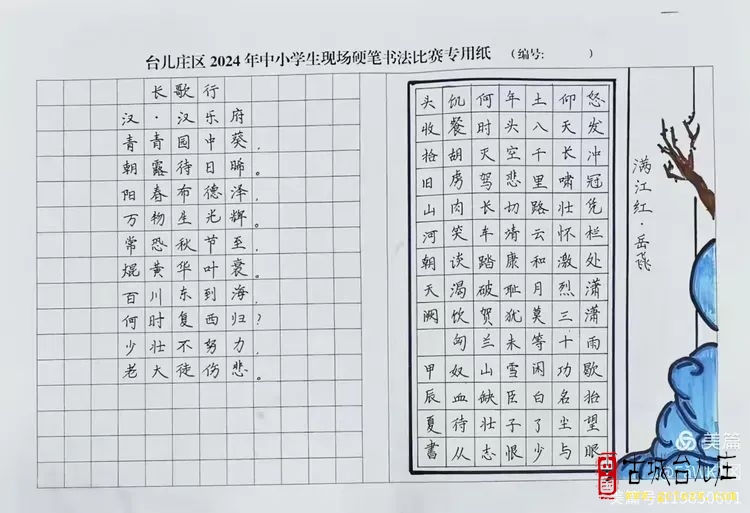 台儿庄区2024年中小学生现场硬笔书法比赛专用纸 (编号: )
长歌行
汉·汉乐府
青青园中葵,
朝露待日晞。
阳春布德泽,
万物生光辉。
常恐秋节至,
焜黄华叶衰。
百川东到海,
何时复西归?
少壮不努力,
老大徒伤悲。
满江红·岳飛
怒发冲冠凭栏处潇潇雨歇抬望眼
仰天长啸壮怀激烈三十功名尘与
土八千里路云和月莫等闲白了少
年头空悲切靖康耻犹未雪臣子恨
何时灭驾长车踏破贺兰山缺壮志
饥餐胡虏肉笑谈渴饮匈奴血待从
头收拾旧山河朝天阙 甲辰夏書
美篇
中國
古城台儿庄